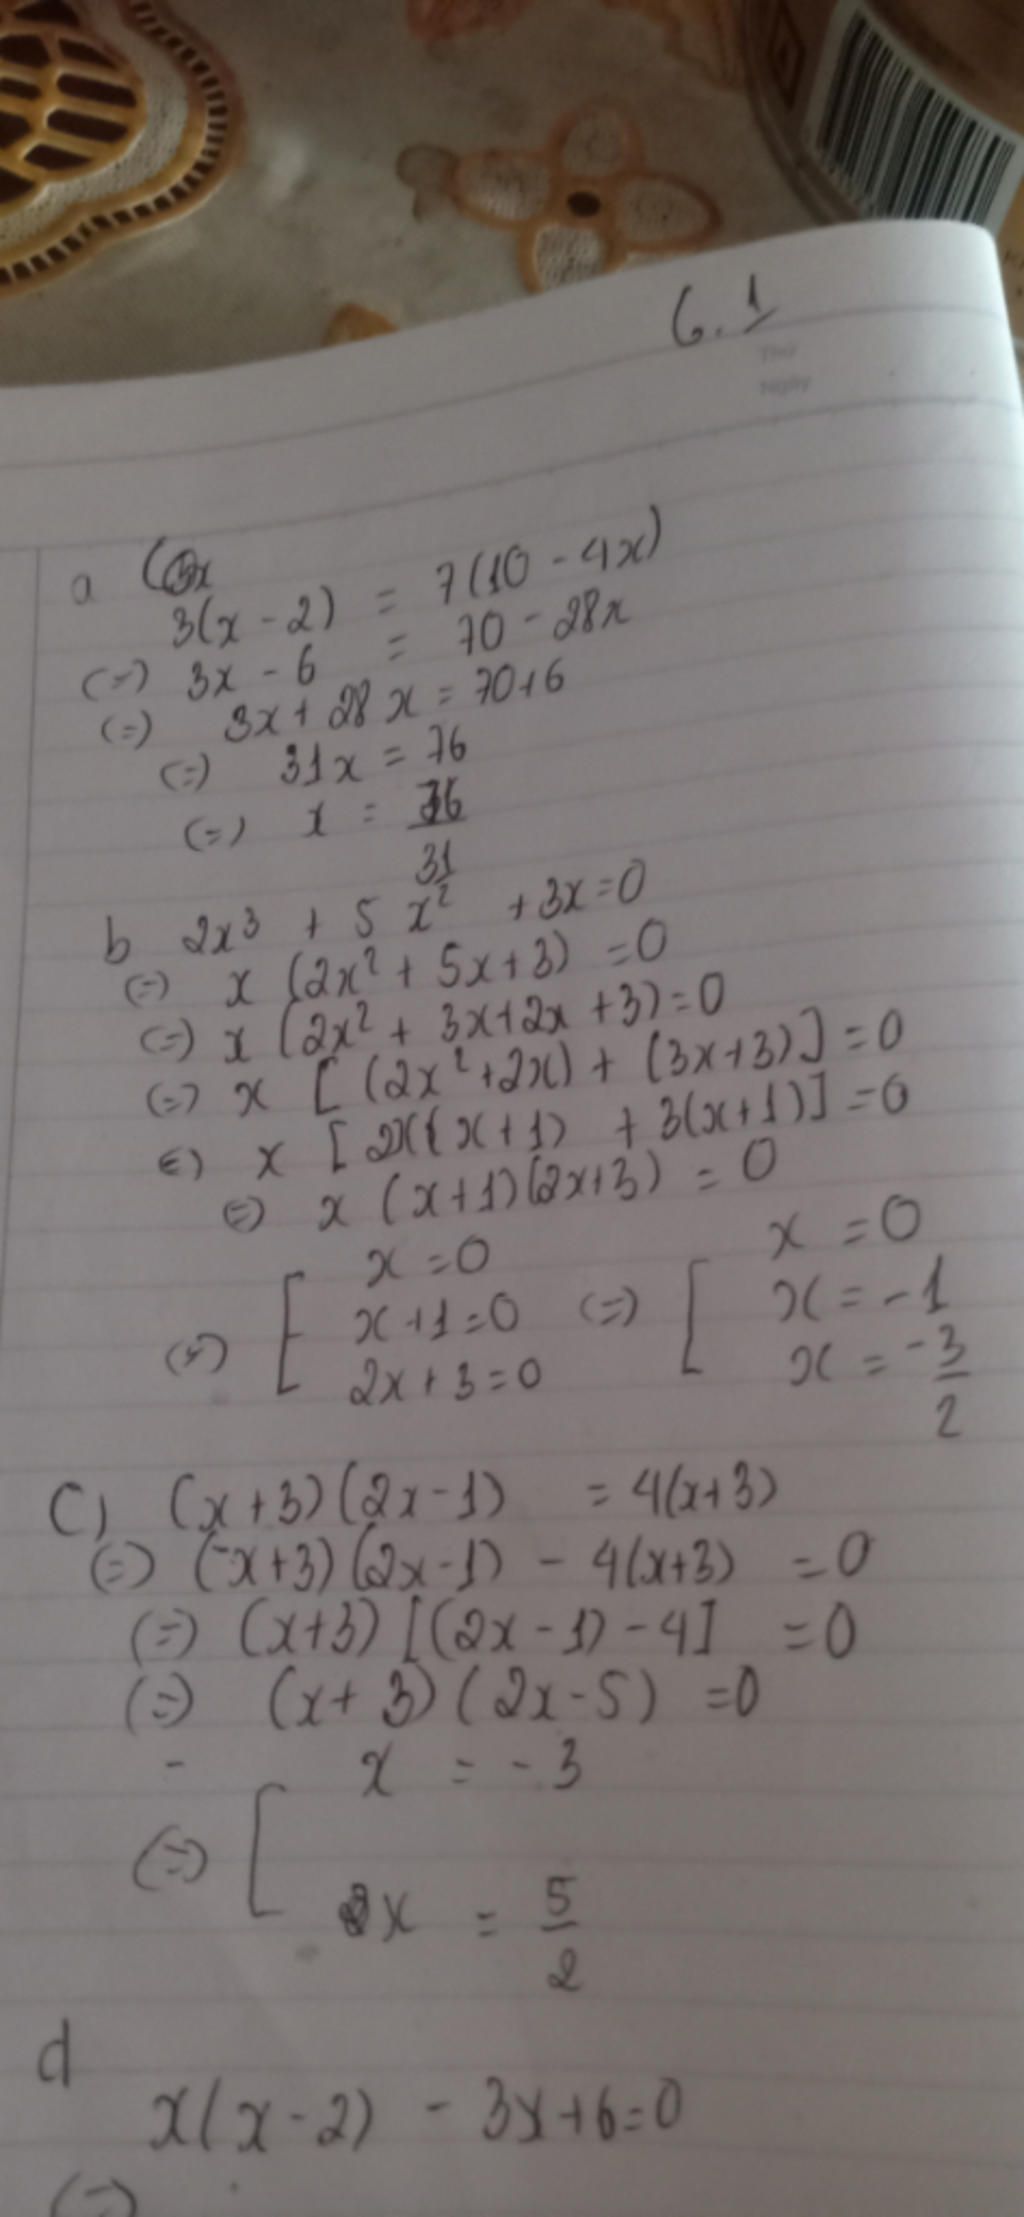 6.1
Thứ
Ngày
a
3(x - 2) = 7(10 - 4x)
(=) 3x - 6 = 70 - 28x
(=) 3x + 28x = 70+6
(=) 31x = 76
(=) x = 76/31
b 2x³ + 5x² + 3x=0
(=) x (2x² + 5x+3) =0
(=) x (2x² + 3x+2x +3)=0
(=) x [(2x²+2x) + (3x+3)] =0
(=) x [2x(x+1) + 3(x+1)] =0
(=) x (x+1)(2x+3) = 0
(=) [ x=0
x+1=0
2x+3=0
(=) [ x = 0
x = -1
x = -3/2
C) (x+3)(2x-1) = 4(x+3)
(=) (x+3)(2x-1) - 4(x+3) =0
(=) (x+3)[(2x-1)-4] =0
(=) (x+3)(2x-5) =0
(=) [ x = -3
x = 5/2
d
x(x-2) - 3x+6=0
(=)